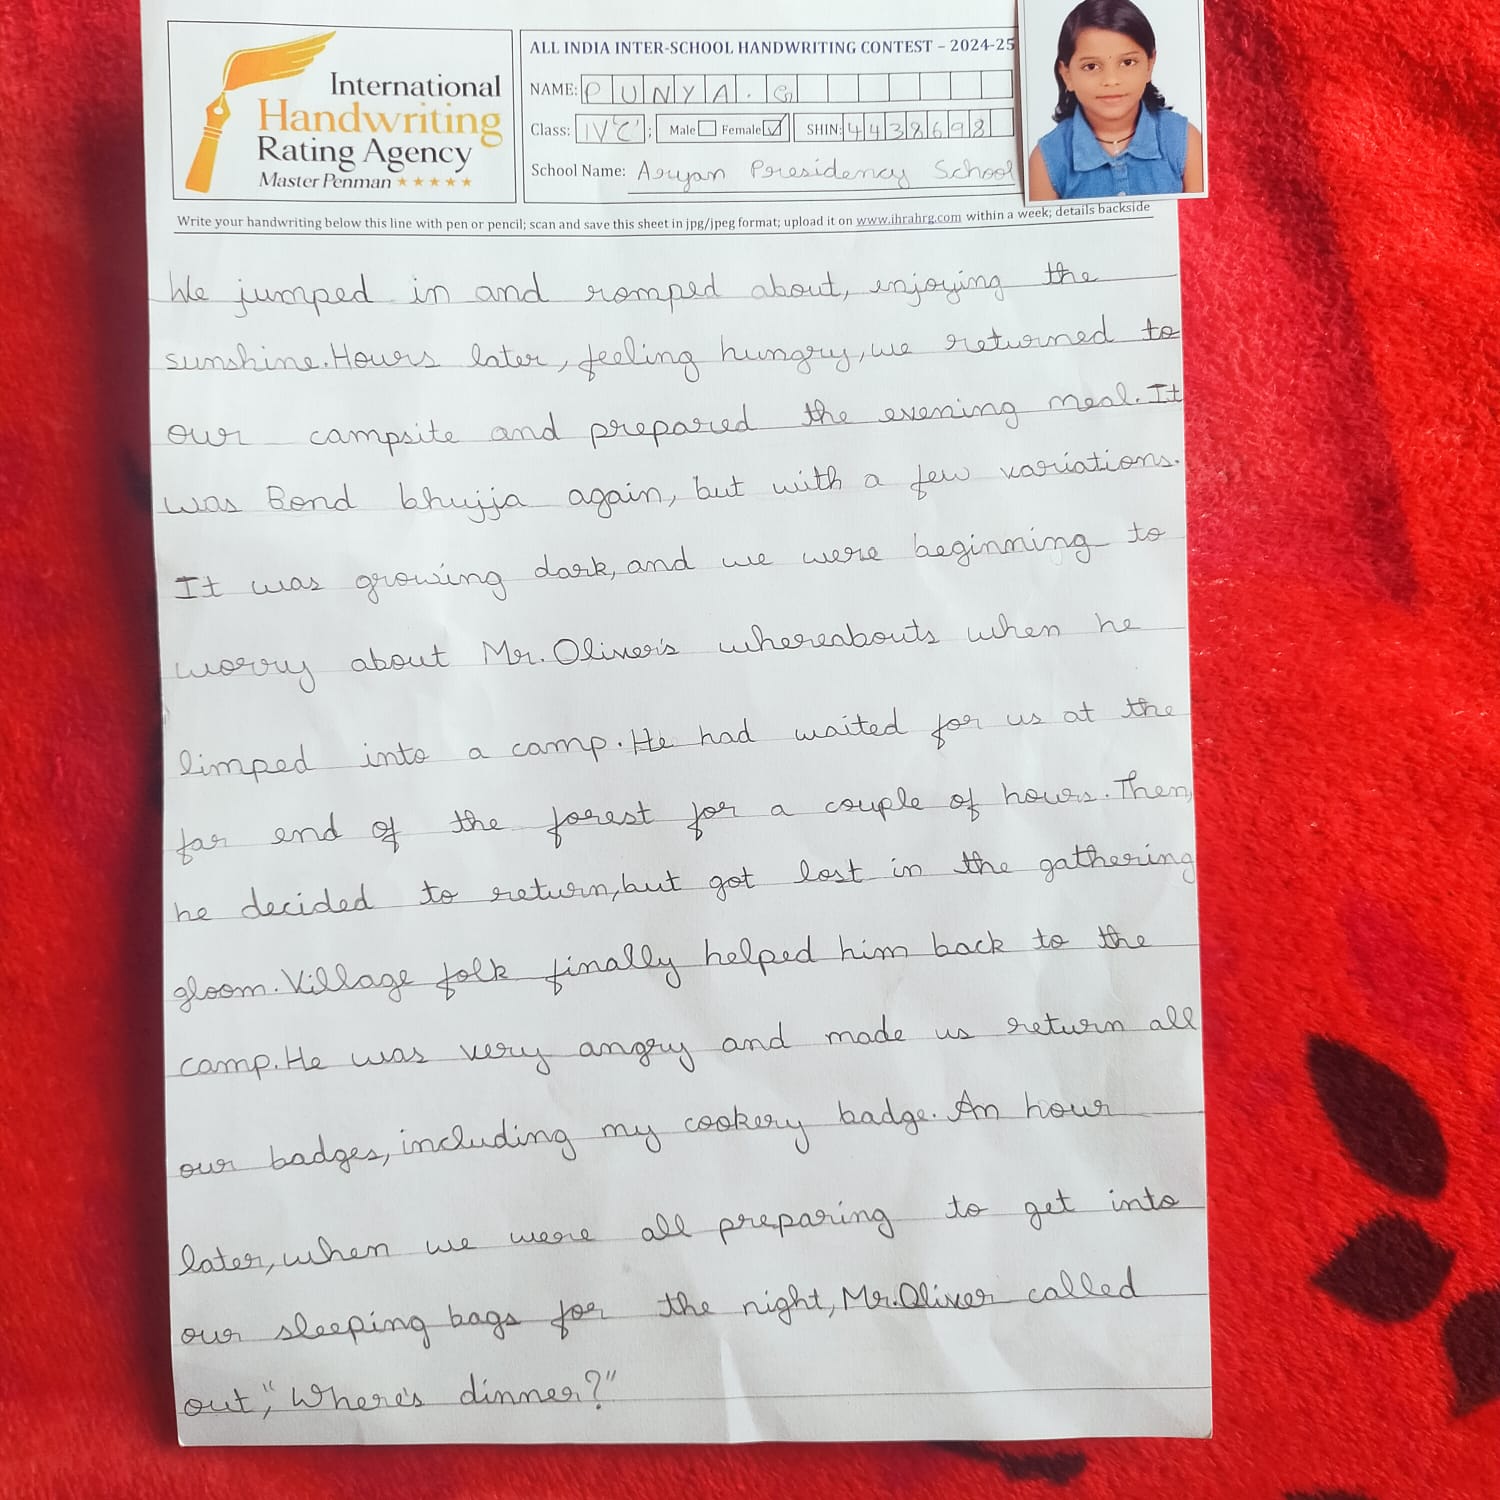 International
Handwriting
Rating Agency
Master Penman ★★★★★
ALL INDIA INTER-SCHOOL HANDWRITING CONTEST – 2024-25
NAME: PUNYA.G
Class: IV 'C' ; Male Female ✓ SHIN: 4438698
School Name: Aryan Presidency School
Write your handwriting below this line with pen or pencil; scan and save this sheet in jpg/jpeg format; upload it on www.ihrahrg.com within a week; details backside
We jumped in and romped about, enjoying the
sunshine. Hours later, feeling hungry, we returned to
our campsite and prepared the evening meal. It
was Bond bhujjia again, but with a few variations.
It was growing dark, and we were beginning to
worry about Mr. Oliver's whereabouts when he
limped into a camp. He had waited for us at the
far end of the forest for a couple of hours. Then,
he decided to return, but got lost in the gathering
gloom. Village folk finally helped him back to the
camp. He was very angry and made us return all
our badges, including my cookery badge. An hour
later, when we were all preparing to get into
our sleeping bags for the night, Mr. Oliver called
out, "Where's dinner?"